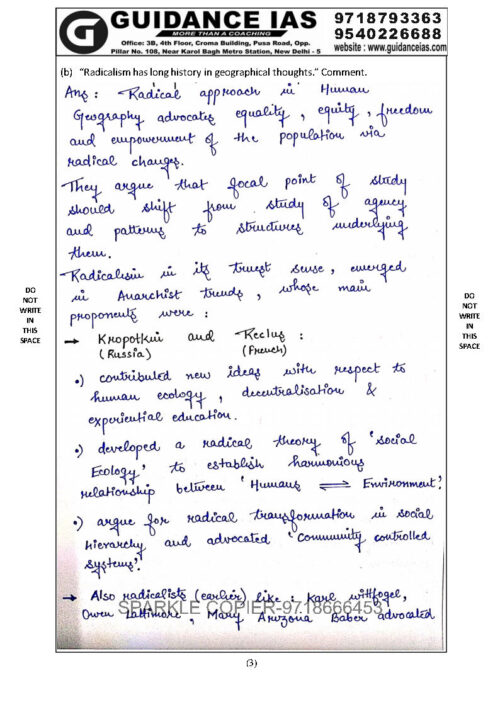 GUIDANCE IAS
MORE THAN A COACHING
Office: 3B, 4th Floor, Croma Building, Pusa Road, Opp.
Pillar No. 108, Near Karol Bagh Metro Station, New Delhi - 5
9718793363
9540226688
website : www.guidanceias.com
(b) "Radicalism has long history in geographical thoughts." Comment.
Ans : Radical approach in Human
Geography advocates equality, equity, freedom
and empowerment of the population via
radical changes.
They argue that focal point of study
should shift from study of agency
and patterns to structures underlying
them.
Radicalism in its truest sense, emerged
in Anarchist trends, whose main
proponents were :
→ Kropotkin and Reclus :
(Russia) (French)
•) contributed new ideas with respect to
human ecology, decentralisation &
experiential education.
•) developed a radical theory of 'social
Ecology' to establish harmonious
relationship between 'Humans ⇌ Environment'.
•) argue for radical transformation in social
hierarchy and advocated 'Community controlled
systems'.
→ Also radicalists (earlier) like : Karl wittfogel,
Owen Lattimore, Mary Arizona Baber advocated
SPARKLE COPIER-9718666453
DO
NOT
WRITE
IN
THIS
SPACE
DO
NOT
WRITE
IN
THIS
SPACE
(3)